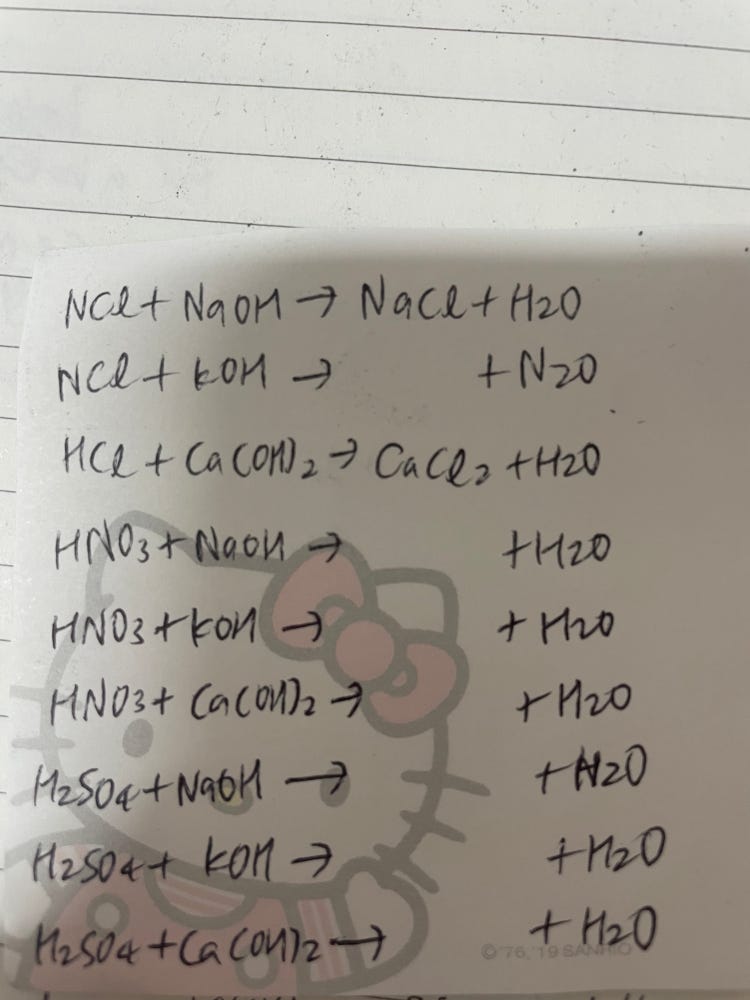 HCl + NaOH → NaCl + H2O
HCl + KOH → + H2O
HCl + Ca(OH)2 → CaCl2 + H2O
HNO3 + NaOH → + H2O
HNO3 + KOH → + H2O
HNO3 + Ca(OH)2 → + H2O
H2SO4 + NaOH → + H2O
H2SO4 + KOH → + H2O
H2SO4 + Ca(OH)2 → + H2O
©'76,'19 SANRIO